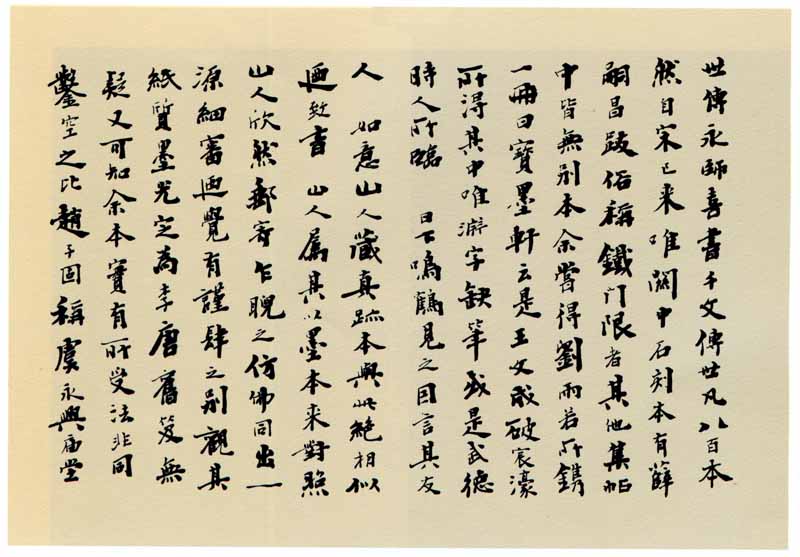 世傳永師喜書千文傳世凡八百本
然自宋已来唯關中石刻本有薛
嗣昌跋俗稱鐵门限者其他集帖
中皆無別本余嘗得劉雨若所鐫
一冊曰寶墨軒云是王文成破宸濠
所得其中唯淵字缺筆或是武德
時人所臨 日下鳴鶴見之因言其友
人 如意山人藏真跡本與此絕相似
迺致書 山人屬其以墨本来對照
山人欣然郵寄乍睨之仿佛同出一
源細審迺覺有謹肆之別觀其
紙質墨光定為李唐舊笈無
疑又可知余本實有所受法非同
鑿空之比趙子固稱虞永興廟堂